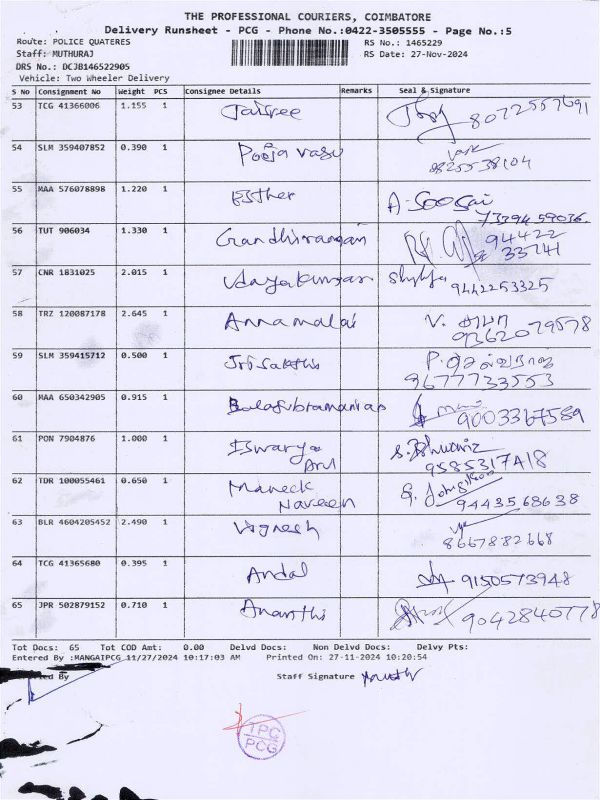 THE PROFESSIONAL COURIERS, COIMBATORE
Delivery Runsheet - PCG - Phone No.:0422-3505555 - Page No.:5
Route: POLICE QUATERES RS No.: 1465229
Staff: MUTHURAJ RS Date: 27-Nov-2024
DRS No.: DCJB146522905
Vehicle: Two Wheeler Delivery
S No Consignment No Weight PCS Consignee Details Remarks Seal & Signature
53 TCG 41366006 1.155 1 Jaisree 8072557691
54 SLM 359407852 0.390 1 Pooja vasu
8825538104
55 MAA 576078898 1.220 1 Esther A-Soosai
7339459036
56 TUT 906034 1.330 1 Gandhiraman 94422
33741
57 CNR 1831025 2.015 1 Udayakumar
9442253325
58 TRZ 120087178 2.645 1 Annamalai V.
9362079578
59 SLM 359415712 0.500 1 Sri Sakthi P.
9677733553
60 MAA 650342905 0.915 1 Balasubramanian
9003367589
61 PON 7904876 1.000 1 Iswarya
Arul 9585317418
62 TDR 100055461 0.650 1 Maneck
Naveen 9443568638
63 BLR 4604205452 2.490 1 Vignesh
8667882668
64 TCG 41365680 0.395 1 Andal 9150573948
65 JPR 502879152 0.710 1 Ananthi 9042840778
Tot Docs: 65 Tot COD Amt: 0.00 Delvd Docs: Non Delvd Docs: Delvy Pts:
Entered By :MANGAIPCG 11/27/2024 10:17:03 AM Printed On: 27-11-2024 10:20:54
By Staff Signature
TPC
PCG